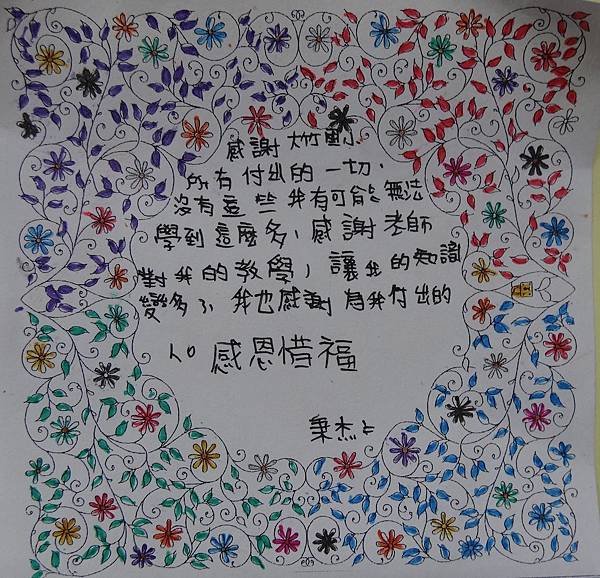 感謝大竹國小
所有付出的一切,
沒有這些我有可能無法
學到這麼多,感謝老師
對我的教學,讓我的知識
變多了,我也感謝為我付出的
人。感恩惜福
秉杰上